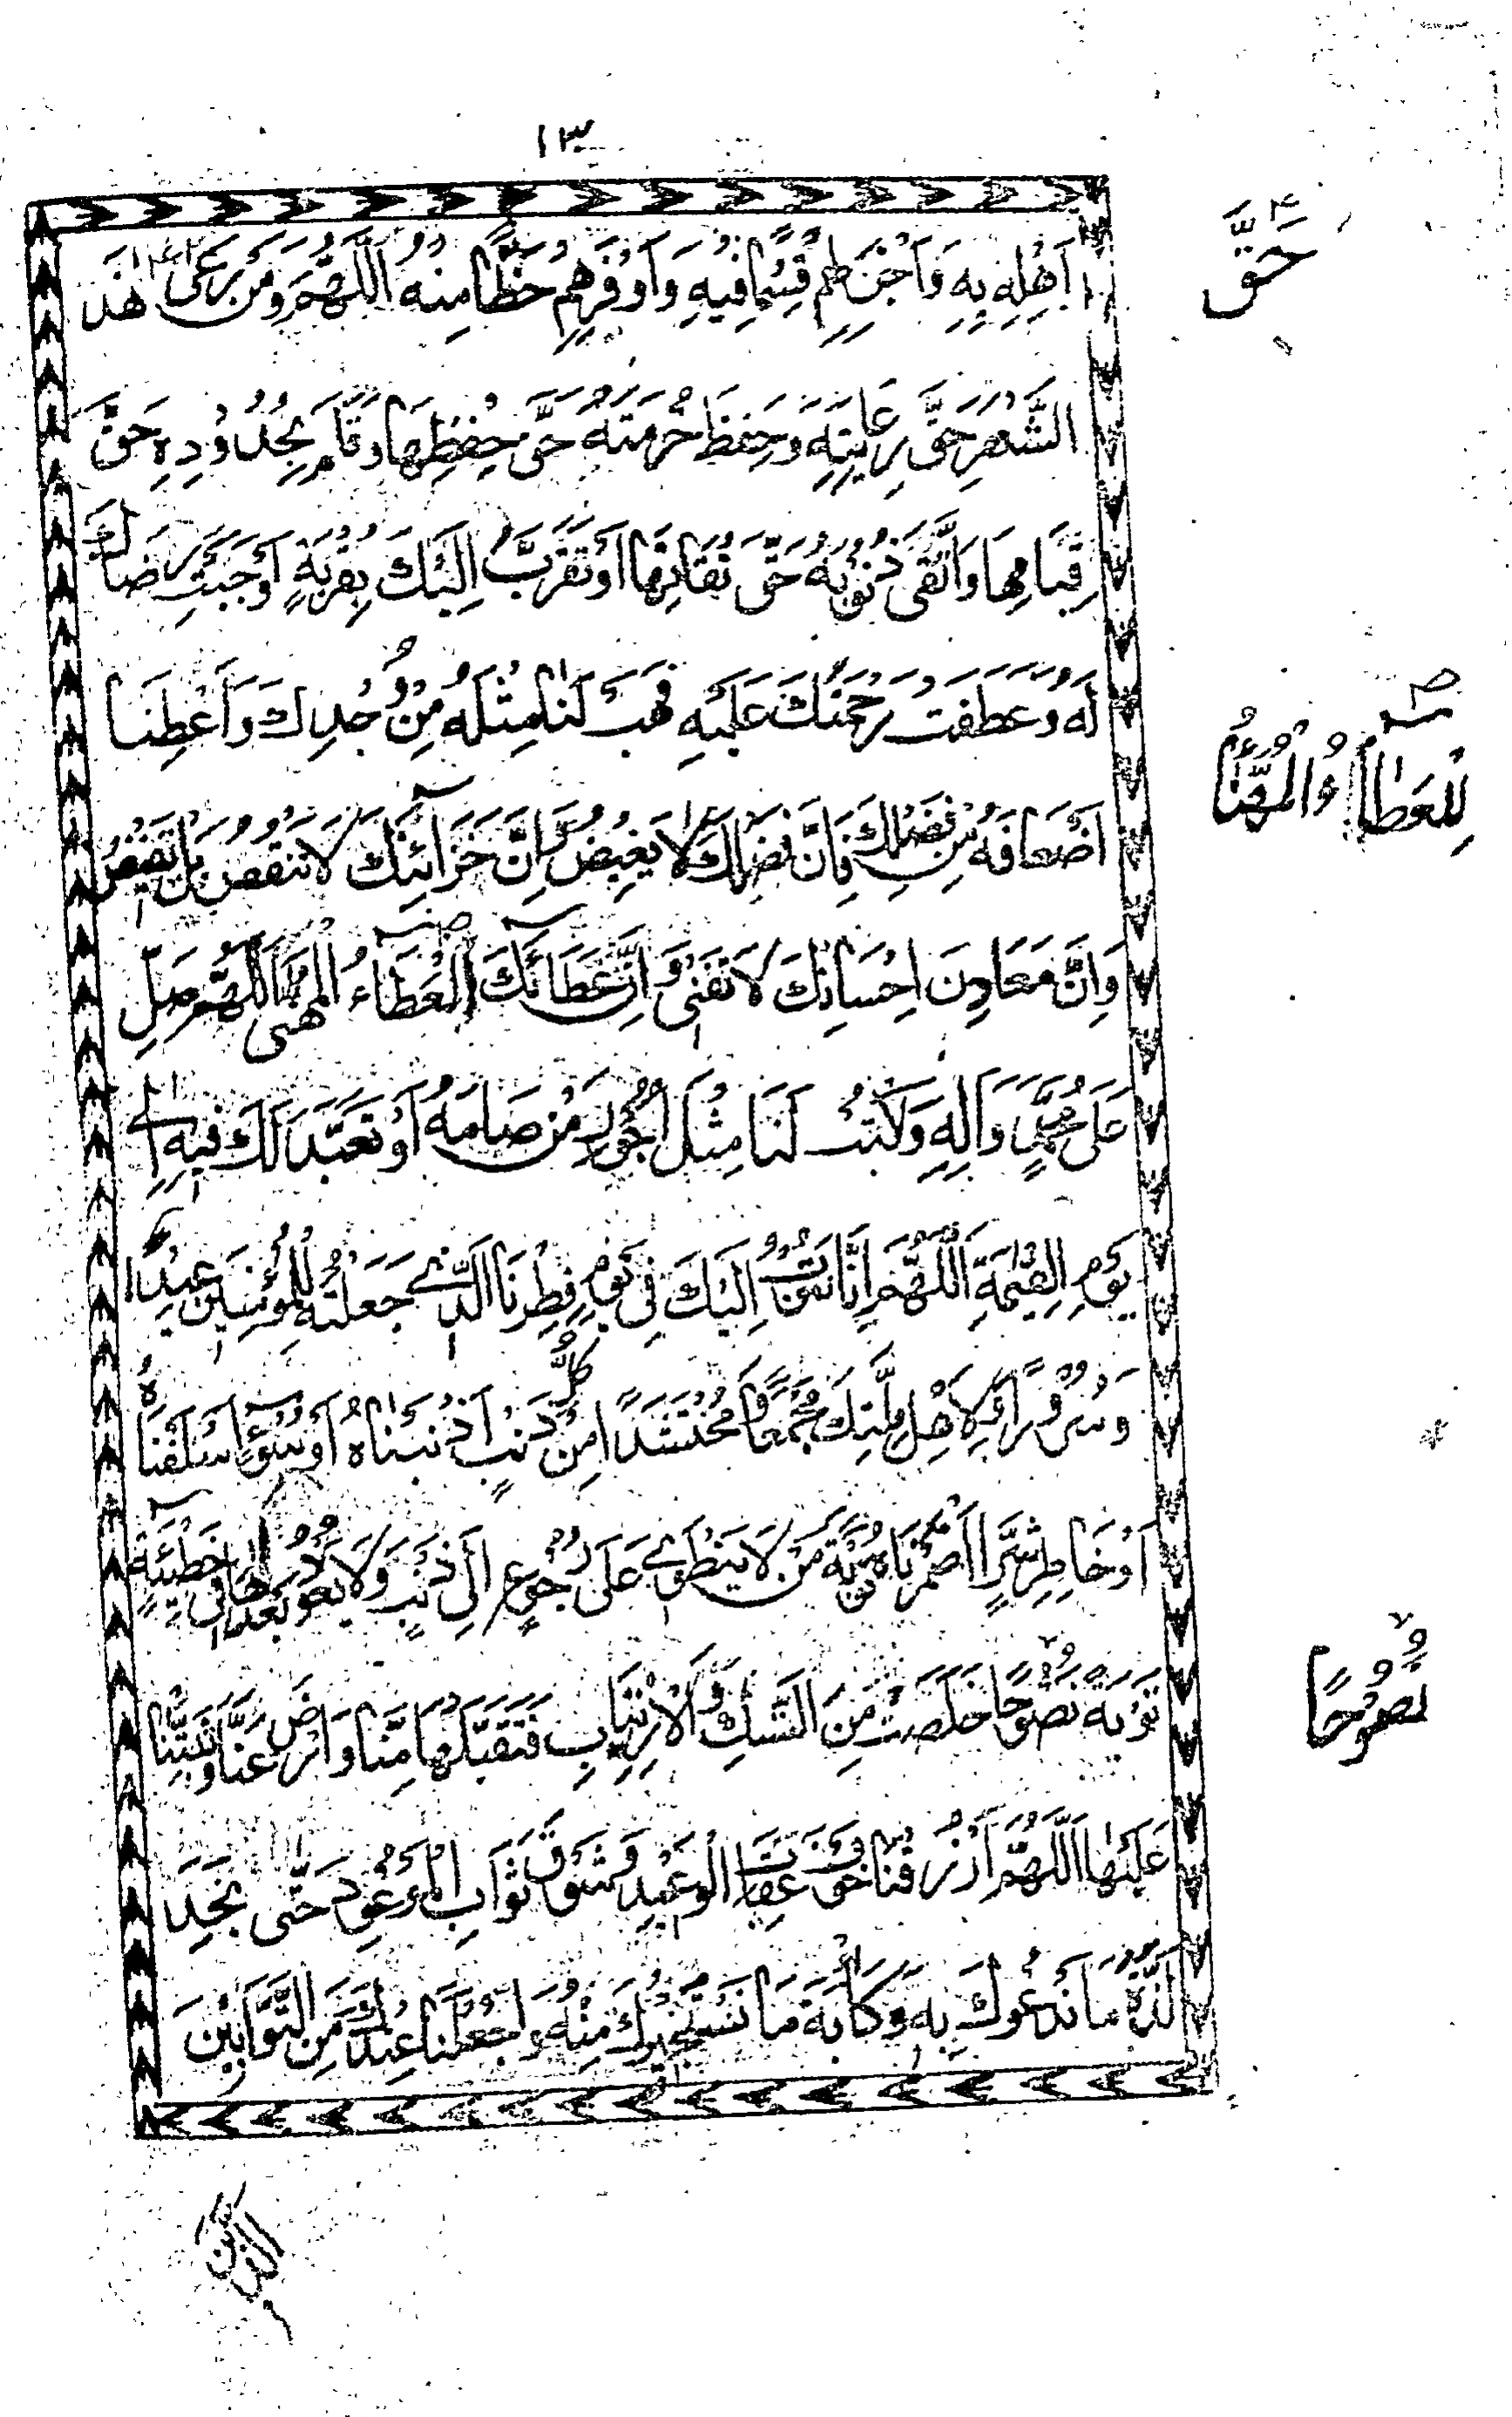 ١٣
اَهْلِهِ بِهِ وَاَجْزَلِهِمْ قِسْمًا فِيهِ وَاَوْفَرِهِمْ حَظًّا مِنْهُ اَللّٰهُمَّ وَمَنْ رَعٰى هٰذَا
الشَّهْرَ حَقَّ رِعَايَتِهِ وَحَفِظَ حُرْمَتَهُ حَقَّ حِفْظِهَا وَقَامَ بِحُدُوْدِهِ حَقَّ
قِيَامِهَا وَاتَّقٰى ذُنُوْبَهُ حَقَّ تُقَاتِهَا اَوْ تَقَرَّبَ اِلَيْكَ بِقُرْبَةٍ اَوْجَبَتْ رِضَاكَ
لَهُ وَعَطَفَتْ رَحْمَتَكَ عَلَيْهِ فَهَبْ لَنَا مِثْلَهُ مِنْ وُجْدِكَ وَاَعْطِنَا
اَضْعَافَهُ مِنْ فَضْلِكَ فَاِنَّ فَضْلَكَ لَا يَغِيْضُ وَاِنَّ خَزَآئِنَكَ لَا تَنْقُصُ بَلْ تَفِيْضُ
وَاِنَّ مَعَادِنَ اِحْسَانِكَ لَا تَفْنٰى وَاِنَّ عَطَآئَكَ الْعَطَآءُ الْمُهَنَّا اَللّٰهُمَّ صَلِّ
عَلٰى مُحَمَّدٍ وَاٰلِهِ وَاكْتُبْ لَنَا مِثْلَ اُجُوْرِ مَنْ صَامَهُ اَوْ تَعَبَّدَ لَكَ فِيْهِ اِلٰى
يَوْمِ الْقِيٰمَةِ اَللّٰهُمَّ اِنَّا نَتُوْبُ اِلَيْكَ فِيْ يَوْمِ فِطْرِنَا الَّذِيْ جَعَلْتَهُ لِلْمُؤْمِنِيْنَ عِيْدًا
وَسُرُوْرًا وَلِاَهْلِ مِلَّتِكَ مَجْمَعًا وَمُحْتَشَدًا مِنْ كُلِّ ذَنْبٍ اَذْنَبْنَاهُ اَوْ سُوْٓءٍ اَسْلَفْنَاهُ
اَوْ خَاطِرِ شَرٍّ اَضْمَرْنَاهُ تَوْبَةَ مَنْ لَا يَنْطَوِيْ عَلٰى رُجُوْعٍ اِلٰى ذَنْبٍ وَلَا يَعُوْدُ بَعْدَهَا فِيْ خَطِيْٓئَةٍ
تَوْبَةً نَصُوْحًا خَلَصَتْ مِنَ الشَّكِّ وَالْاِرْتِيَابِ فَتَقَبَّلْهَا مِنَّا وَارْضَ عَنَّا وَثَبِّتْنَا
عَلَيْهَا اَللّٰهُمَّ ارْزُقْنَا خَوْفَ عِقَابِ الْوَعِيْدِ وَشَوْقَ ثَوَابِ الْمَوْعُوْدِ حَتّٰى نَجِدَ
لَذَّةَ مَا نَدْعُوْكَ بِهِ وَكَاٰبَةَ مَا نَسْتَجِيْرُكَ مِنْهُ وَاجْعَلْنَا عِنْدَكَ مِنَ التَّوَّابِيْنَ
الَّذِيْنَ
حَقَّ
لِلْعَطَآءُ الْمُهَنَّا
نُصُوْحًا